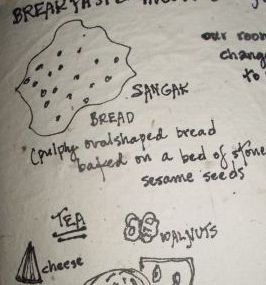 BREAKFAST
our room
chang
to
SANGAK
BREAD
ovalshaped bread
baked on a bed of stone
sesame seeds
TEA
WALNUTS
cheese